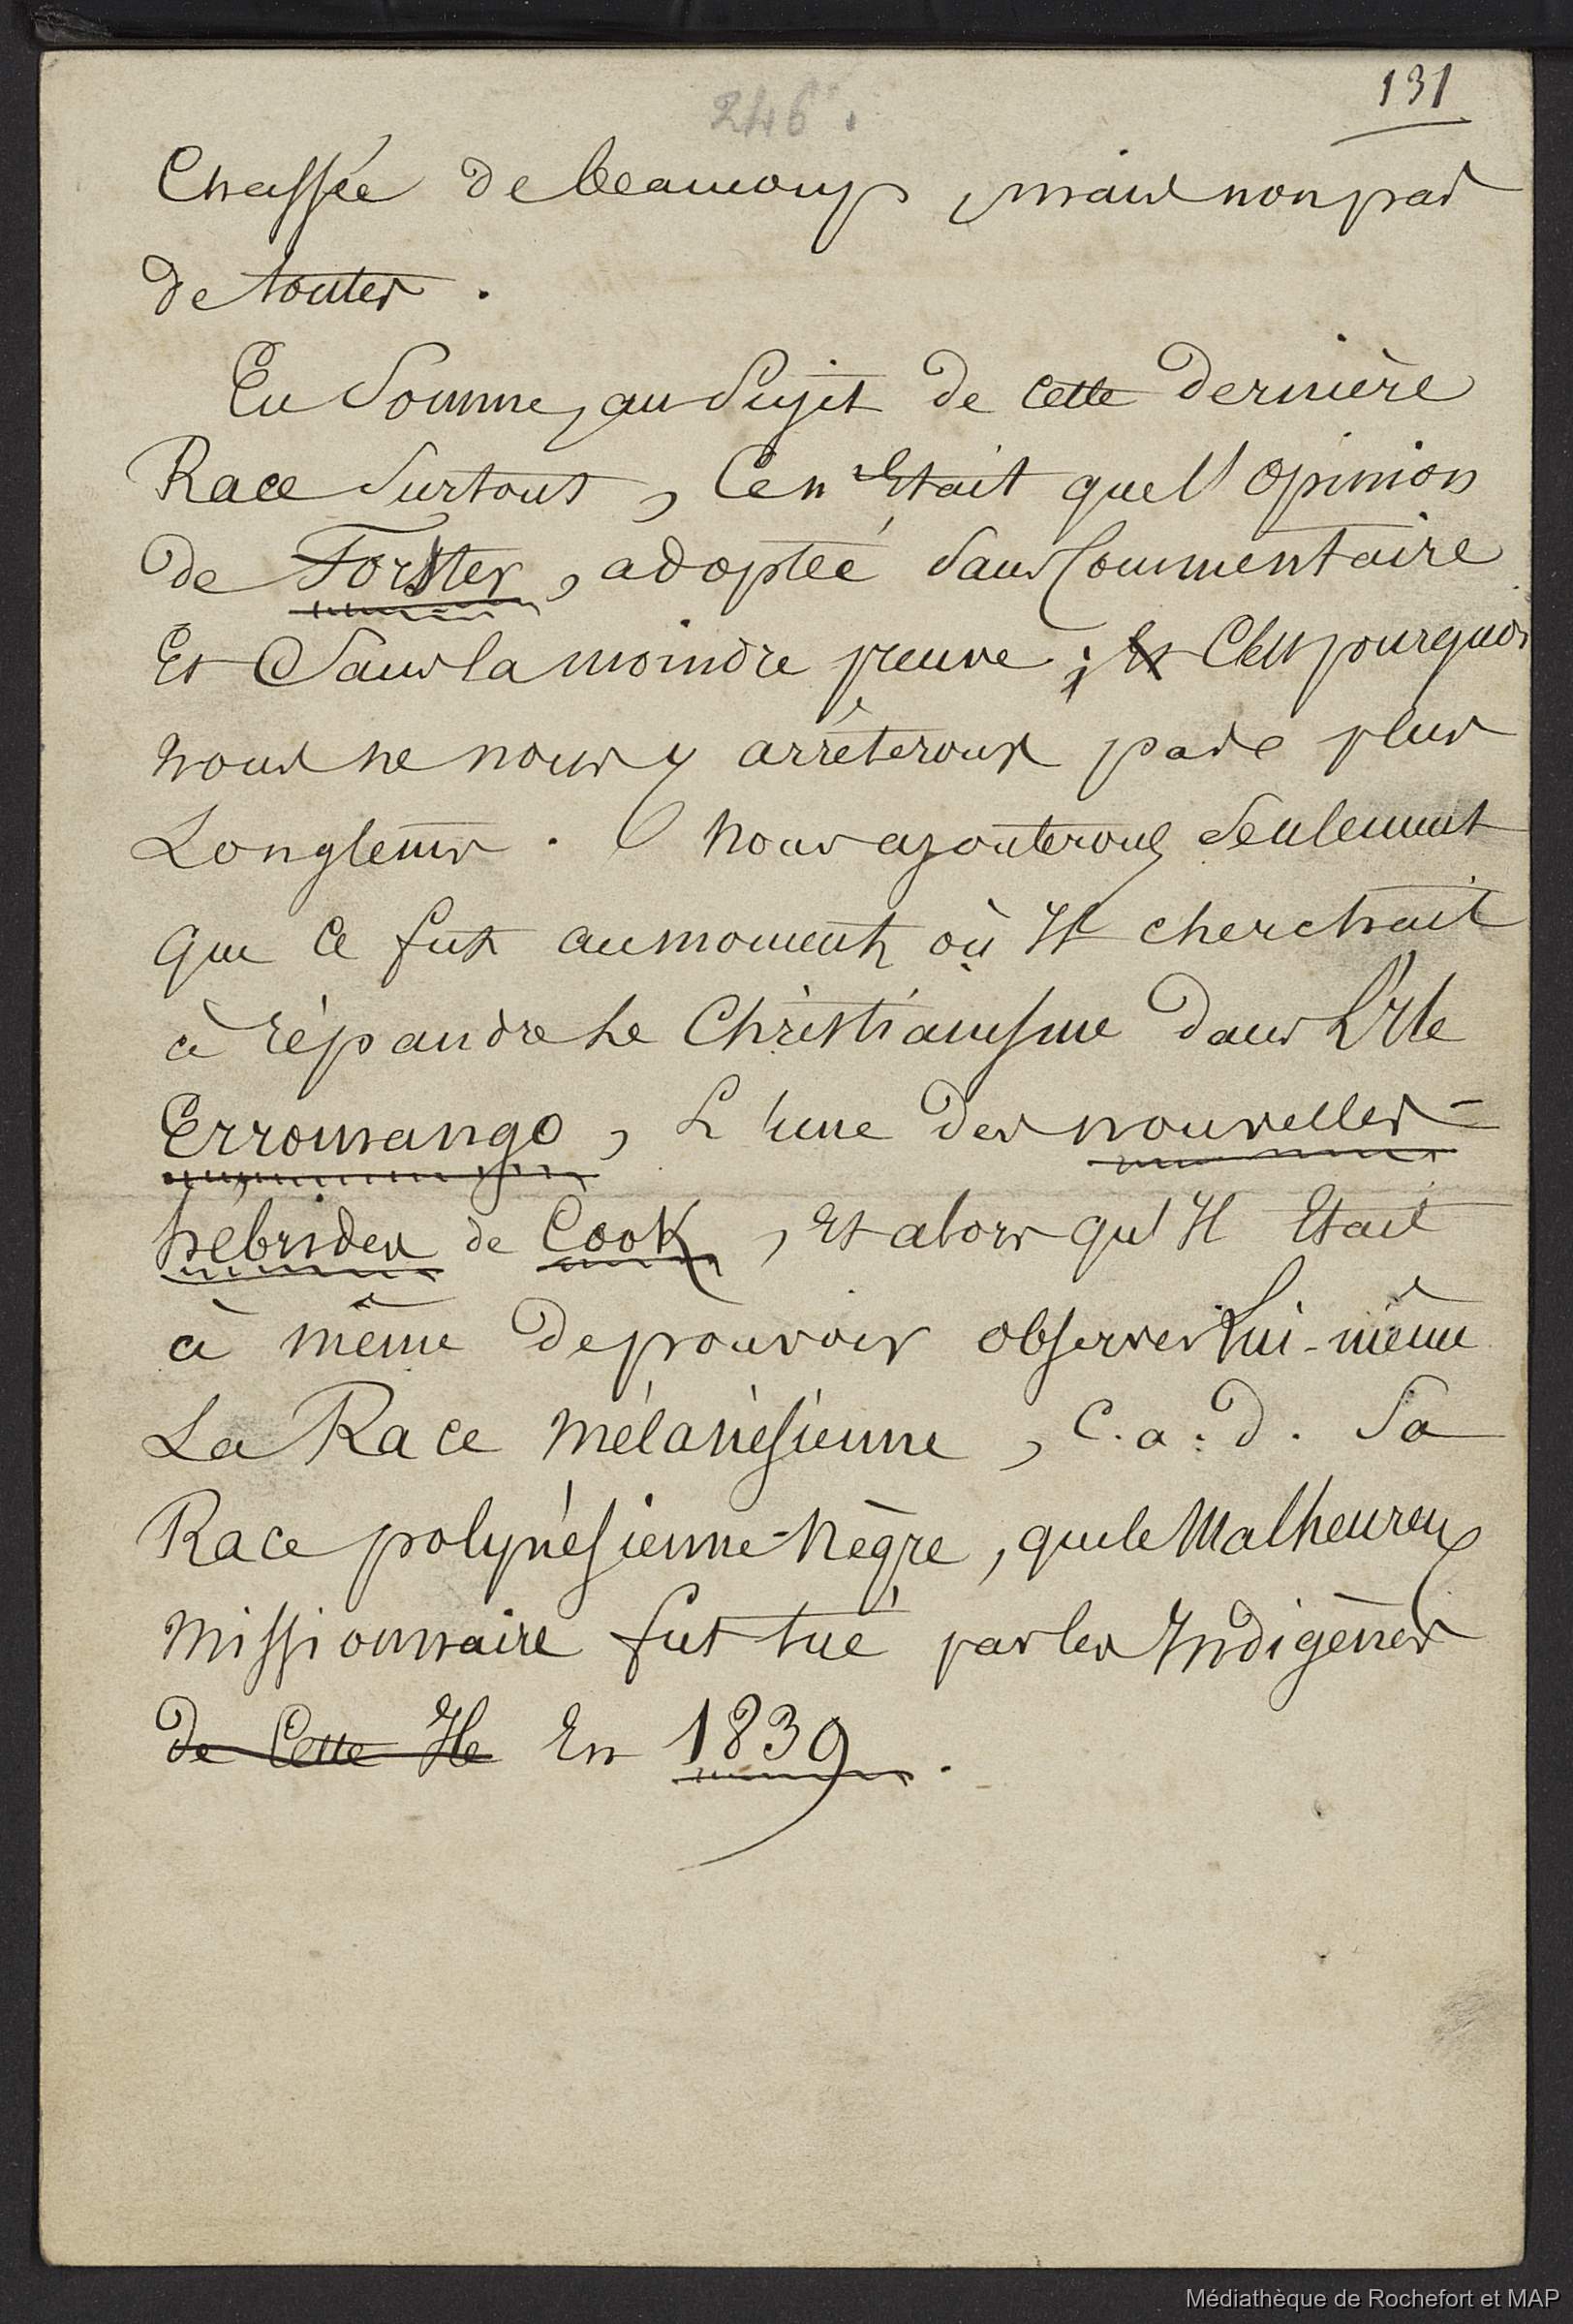 131
246.
Chassée de beaucoup, mais non pas
de toutes.
En Somme, au Sujet de cette dernière
Race Surtout, Ce n'Etait que l'opinion
de Forster, adoptée Sans Commentaire
Et Sans la moindre preuve ; Et C'est pourquoi
nous ne nous y arrêterons pas plus
Longtems. Nous ajouterons Seulement
que Ce fut au moment où Il cherchait
à répandre Le Christianisme dans L'Ile
Erromango, L'une des nouvelles-
hébrides de Cook, Et alors qu'Il Etait
à même de pouvoir observer Lui-même
La Race mélanésienne, C.a.d. Sa
Race polynésienne-Nègre, que le Malheureux
missionnaire fut tué par les Indigènes
de Cette Ile En 1839.
Médiathèque de Rochefort et MAP